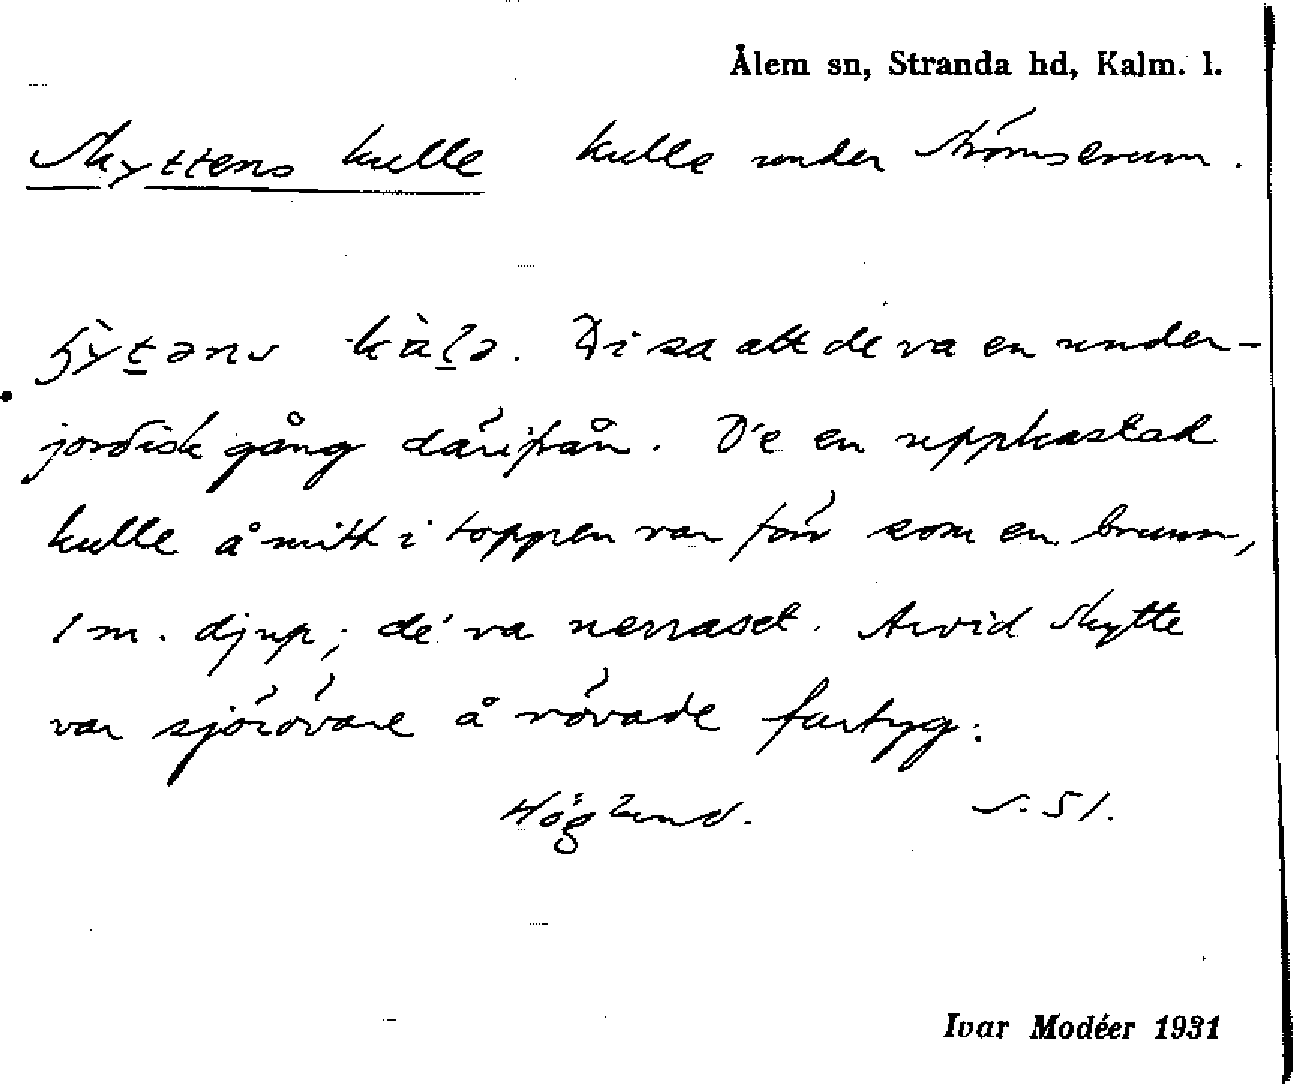 Ålem sn, Stranda hd, Kalm. l.
Skyttens kulle kulle under Strömserum.
Di sa att de va en under-
jordisk gång därifrån. De en uppkastad
kulle å mitt i toppen var förr som en brunn,
1 m. djup; de va nerraset. Arvid Skytte
var sjörövare å rövade fartyg.
Höglund. S. 51.
Ivar Modéer 1931